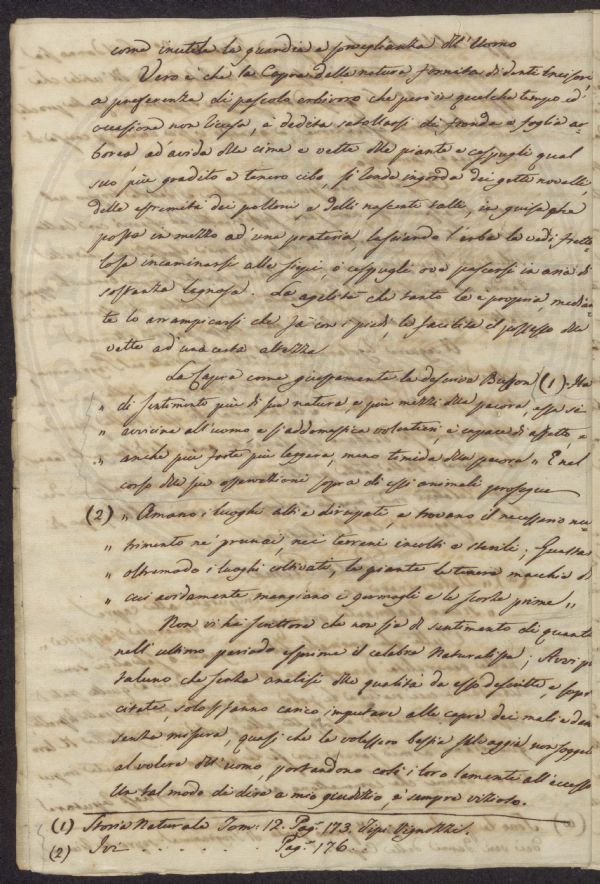 come inutile la guardia e sorveglianza dell'Uomo
Vero è che la Capra dalla natura fornita di denti Incisori,
a preferenza di pascolo erbivoro che però in qualche tempo ed
occasione non ricusa, è dedita satollarsi di fronda e foglia ar-
borea ad'avida delle cime e vette delle piante e cespugli qual
suo più gradito e tenero cibo, si rende ingorda dei getti novelli,
delle estremità dei polloni, e delli nascenti talli, in guisa che
posta in mezzo ad'una prateria lasciando l'erba la vedi fretto-
losa incaminarsi alle siepi, o cespugli ove pascersi in aria di
sostanza legnosa. La agilità che tanto le è propria, median-
te lo arrampicarsi che fà con i piedi, le facilita il possesso delle
vette ad'una certa altezza
La Capra come giustamente la descrive Buffon (1) Ha
" di sentimento più di sua natura, e più mezzi della pecora, essa si
" avvicina all'uomo e s'addomestica volentieri, è capace di affetto, e
" anche più forte più leggera, meno timida della pecora " E nel
corso delle sue osservazioni sopra di essi animali prosegue
(2) " Amano i luoghi alti e dirupati, e trovano il necessario nu-
" trimento ne' prunai, nei terreni incolti e sterili; Guasta
" oltremodo i luoghi coltivati, le piante le tenere macchie di
" cui avidamente mangiano i germogli e le scorze prime "
Non vi ha scrittore che non sia di sentimento di quanto
nell'ultimo periodo esprime il celebre Naturalista; Avvi più
taluno che senza analisi delle qualità da esso descritte, e sopra
citate, solo si fanno carico imputare alle capre dei mali e danni
senza misura, quasi che le volessero bestie selvaggie non soggette
al volere dell'uomo, portandone così i loro lamenti all'eccesso
Un tal modo di dire a mio giudizio, è sempre vizioso.
(1) Storia Naturale Tom: 12. Pag. 173. Tipi Vignozzi.
(2) Ivi . . . . . Pag. 176.